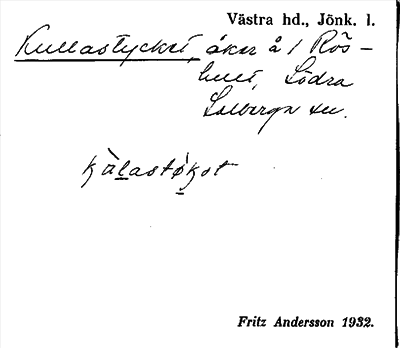 Västra hd., Jönk. l.
Kullastycket, åker å 1 Rös-
hult, Södra
Solberga sn.
kɑ̀lastỳkət
Fritz Andersson 1932.